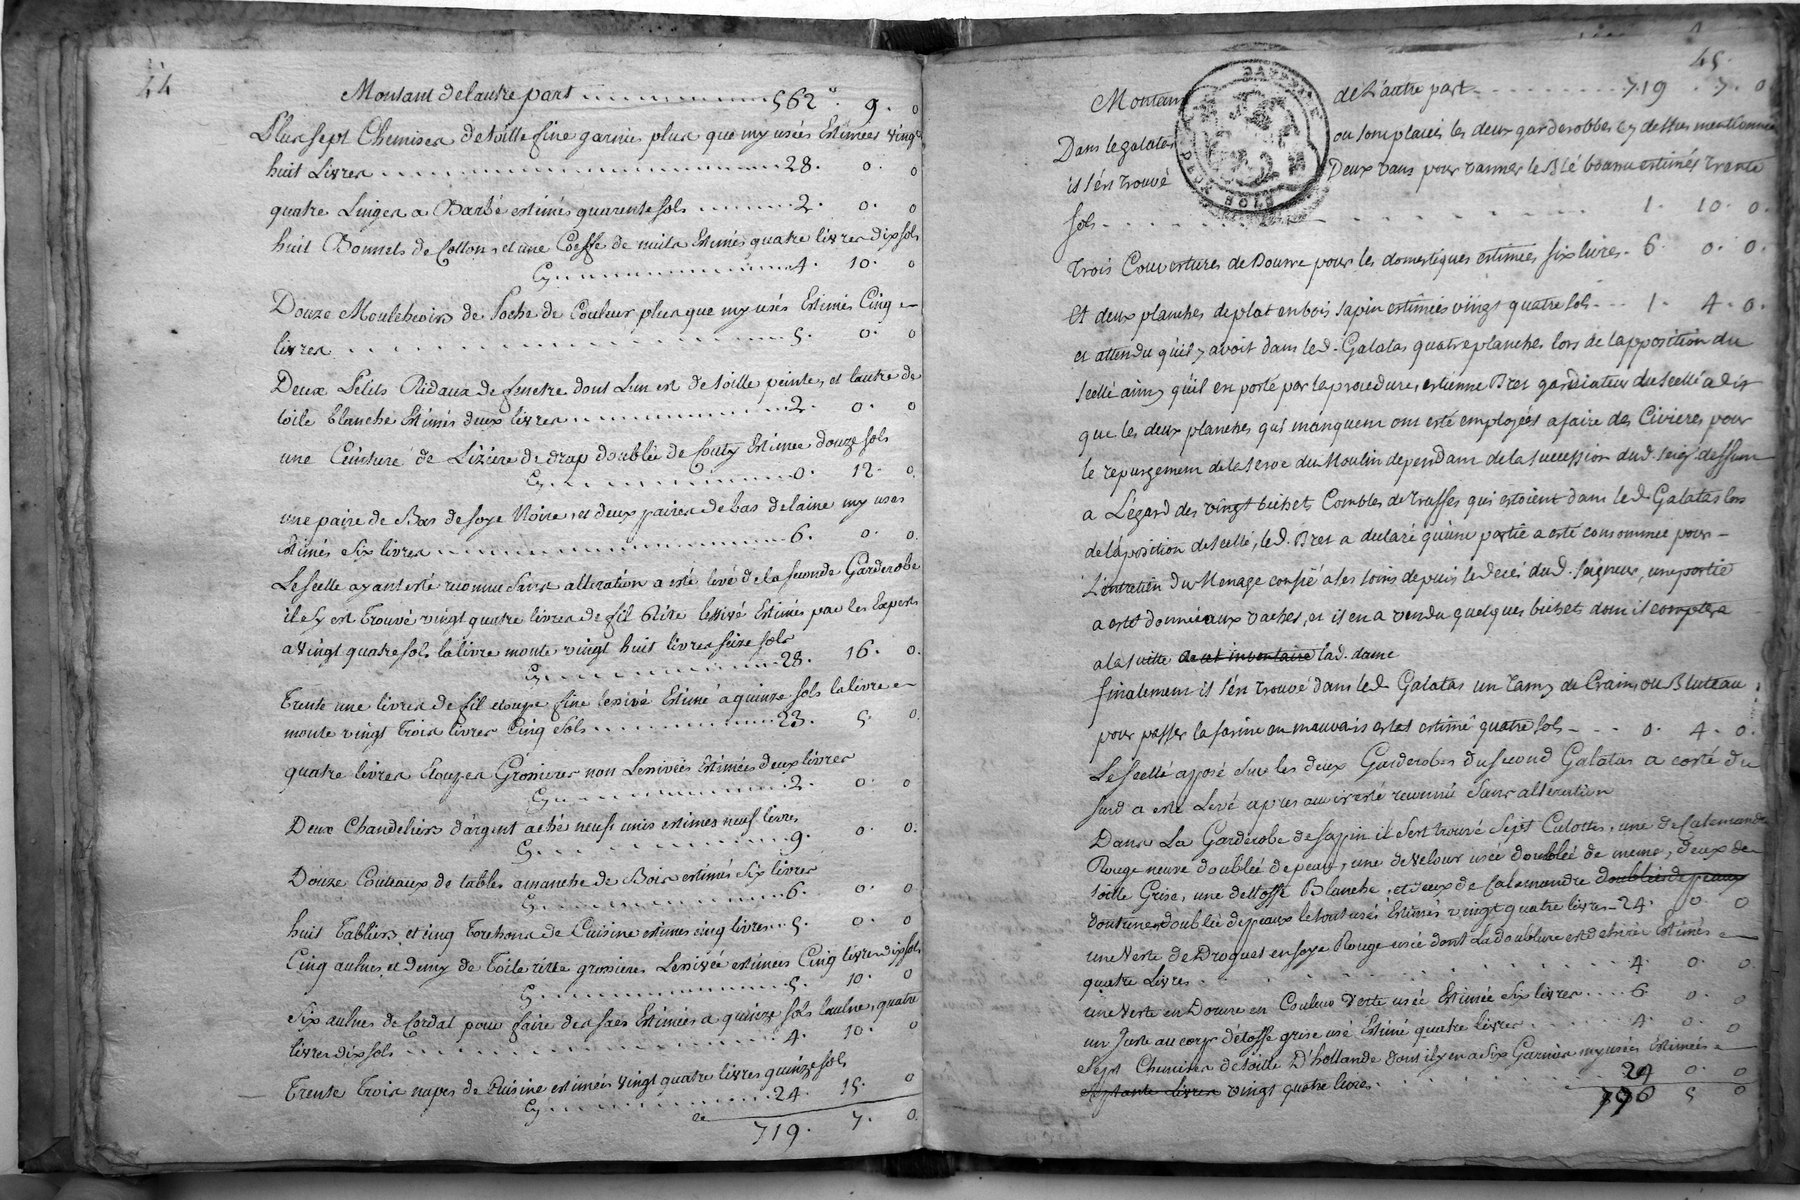 44
Montant de lautre part 562# 9. 0
Plus sept Chemises de toille fine garnies plus que my usées Estimées vingt
huit Livres 28. 0. 0
quatre Linges a Barbe estimés quarente sols 2. 0. 0
huit Bonnets de Cotton, et une Coeffe de nuits Estimés quatre livres dix sols
Cy 4. 10. 0
Douze Mouchoirs de Poche de Couleur plus que my usés Estimés Cinq
livres 5. 0. 0
Deux Petits Ridaux de fenetre dont Lun est de toille peinte, et lautre de
toile blanche Estimés deux livres 2. 0. 0
une Ceinture de Liziere de drap doublée de Couty Estimée douze sols
Cy 0. 12. 0
une paire de Bas de soye Noire, et deux paires de bas de laine my usés
Estimés Six livres 6. 0. 0.
Le scellé ayant esté reconnu Sans alteration a esté levé de la seconde Garderobe
il s'y est Trouvé vingt quatre livres de fil Rite lessivé Estimés par les Experts
a Vingt quatre sols la livre monte vingt huit livres seize sols
Cy 28. 16. 0.
Trente une livres de fil etoupe fine lessivé Estimé a quinze sols la livre
monte vingt Trois livres Cinq Sols 23. 5. 0.
quatre livres Etoupes Grossieres non Lessivées Estimées deux livres
Cy 2. 0. 0
Deux Chandeliers d'argent aché neufs unis estimés neuf livres
Cy 9. 0. 0.
Douze Couteaux de tables amanche de Bois estimés Six livres
Cy 6. 0. 0
huit Tabliers et cinq Torchons de Cuisine estimés cinq livres 5. 0. 0
Cinq aulnes et demy de Toile ritte grossieres Lessivée estimées Cinq livres dix sols
Cy 5. 10. 0
Six aulnes de Cordat pour faire des sacs Estimées a quinze sols laulne, quatre
livres dix sols 4. 10. 0
Trente Trois napes de Cuisine estimées vingt quatre livres quinze sols
Cy 24. 15. 0
719. 7. 0.
45.
Montant de L'autre part 719. 7. 0
Dans le galatas ou sont placés les deux garderobbes cy dessus mentionnés
il s'en trouvé Deux vans pour vanner le Blé bonne estimés trente
sols 1. 10. 0.
Trois Couvertures de Bourre pour les domestiques estimées six livres 6. 0. 0.
Et deux planches de plat en bois sapin estimées vingt quatre sols 1. 4. 0.
et attendu qu'il y avoit dans led. Galatas quatre planches lors de l'apposition du
scellé ainsy qu'il en porté par la procedure, estienne Bret gardiateur du scellé a dit
que les deux planches qui manquent ont esté employées a faire des Civieres pour
le repurgement de la serve du Moulin dependant de la succession dud. seigr deffunt
a L'égard des vingt bichets Combles de Truffes qui estoient dans led Galatas lors
de laposition du scellé, led. Bret a declaré qu'une partie a esté consommée pour
L'entretien du Menage confié a ses soins depuis le decés dud. seigneur, une partie
a esté donnée aux vaches, et il en a vendu quelques bichets dont il comptera
a la suitte de cet inventaire lad. dame
finalement il s'en trouvé dans led Galatas un Tamy de Crains ou Bluteau
pour passer la farine en mauvais estat estimé quatre sols 0. 4. 0.
Le scellé aposé sur les deux Garderobes du second Galatas a costé du
susd a esté Levé apres avoir esté reconnu Sans alteration
Dans La Garderobe de sapin il s'est trouvé sept Culottes, une de Calemandre
Rouge neuve doublée de peau, une de velour usée doublée de meme, deux de
toille Grise, une dettoffe Blanche, et deux de Calemandre doublées de peaux
doublée de peaux le tout usés Estimés vingt quatre livres 24. 0. 0
une Veste de Droguet en soye Rouge usée dont La doublure est dechirée Estimés
quatre Livres 4. 0. 0
une Veste en Dorure en Couleur Verte usée Estimée Six livres 6. 0. 0
un Juste au corps d'étoffe grise usé Estimé quatre livres 4. 0. 0
Sept Chemises de toille D'hollande dont il y en a six Garnies my usées Estimées
septante Livres vingt quatre livres 24 0 0
796 5 0